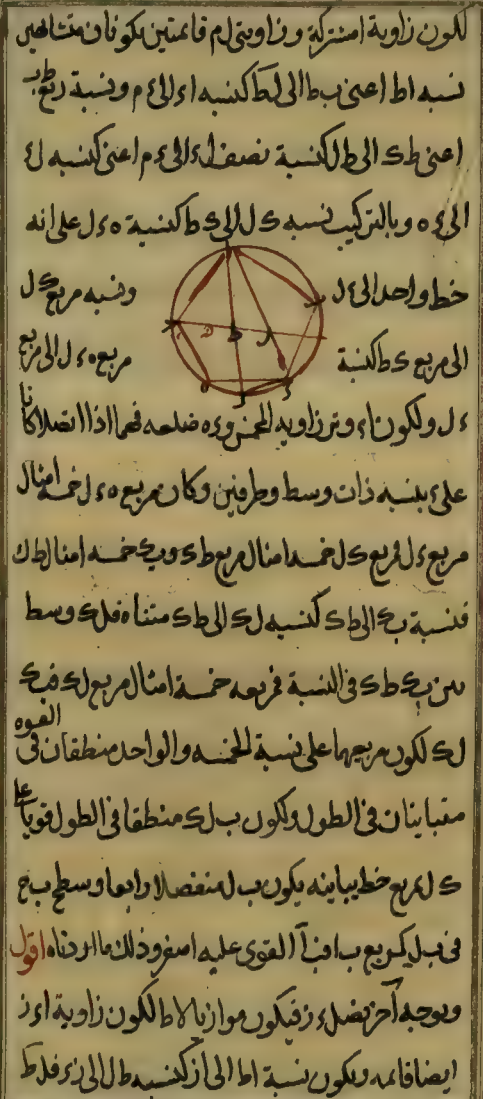 لكون زاوية امشتركة وزاويتى ل م قائمتين يكونان متشابهين
نسبه اط اعنى ب ط الى ل ط كنسبه اء الى ء م ونسبة ربع ط ب
اعنى ط ك الى ط ل كنسبة نصف اء الى ء م اعنى كنسبه ل ء
الى ء ه وبالتركيب نسبه ك ل الى ك ط كنسبة ه ء ل على انه
خط واحد الى ء ل ونسبه مربع ك ل
الى مربع ك ط كنسبة مربع ه ء ل الى مربع
ء ل ولكون اء وتر زاويه المخمس و ء ه ضلعه فهما اذا اتصلا كانا
على نسبه ذات وسط وطرفين وكان مربع ه ء ل خمسه امثال
مربع ء ل فمربع ك ل خمسه امثال مربع ط ك و ب ك خمسه امثال ط ك
فنسبة ب ك الى ط ك كنسبه ل ك الى ط ك مثناه ف ل ك وسط
بين ب ك ط ك فى النسبة فمربعه خمسة امثال مربع ل ك ف ب ك
ل ك لكون مربعيهما على نسبة الخمسه والواحد منطقان فى القوه
متباينان فى الطول ولكون ب ك منطقا فى الطول قويا على
ك ل بمربع خط يباينه يكون ب ل منفصلا رابعا وسطح ب ح
فى ب ل كمربع ب ا ف ب ا القوى عليه اصغر وذلك ما اردناه اقول
وبوجه آخر نصل ء ز فيكون موازيا لاط لكون زاوية ا ء ز
ايضا قائمه ويكون نسبة اط الى از كنسبه ط ل الى ز ء ف ل ط